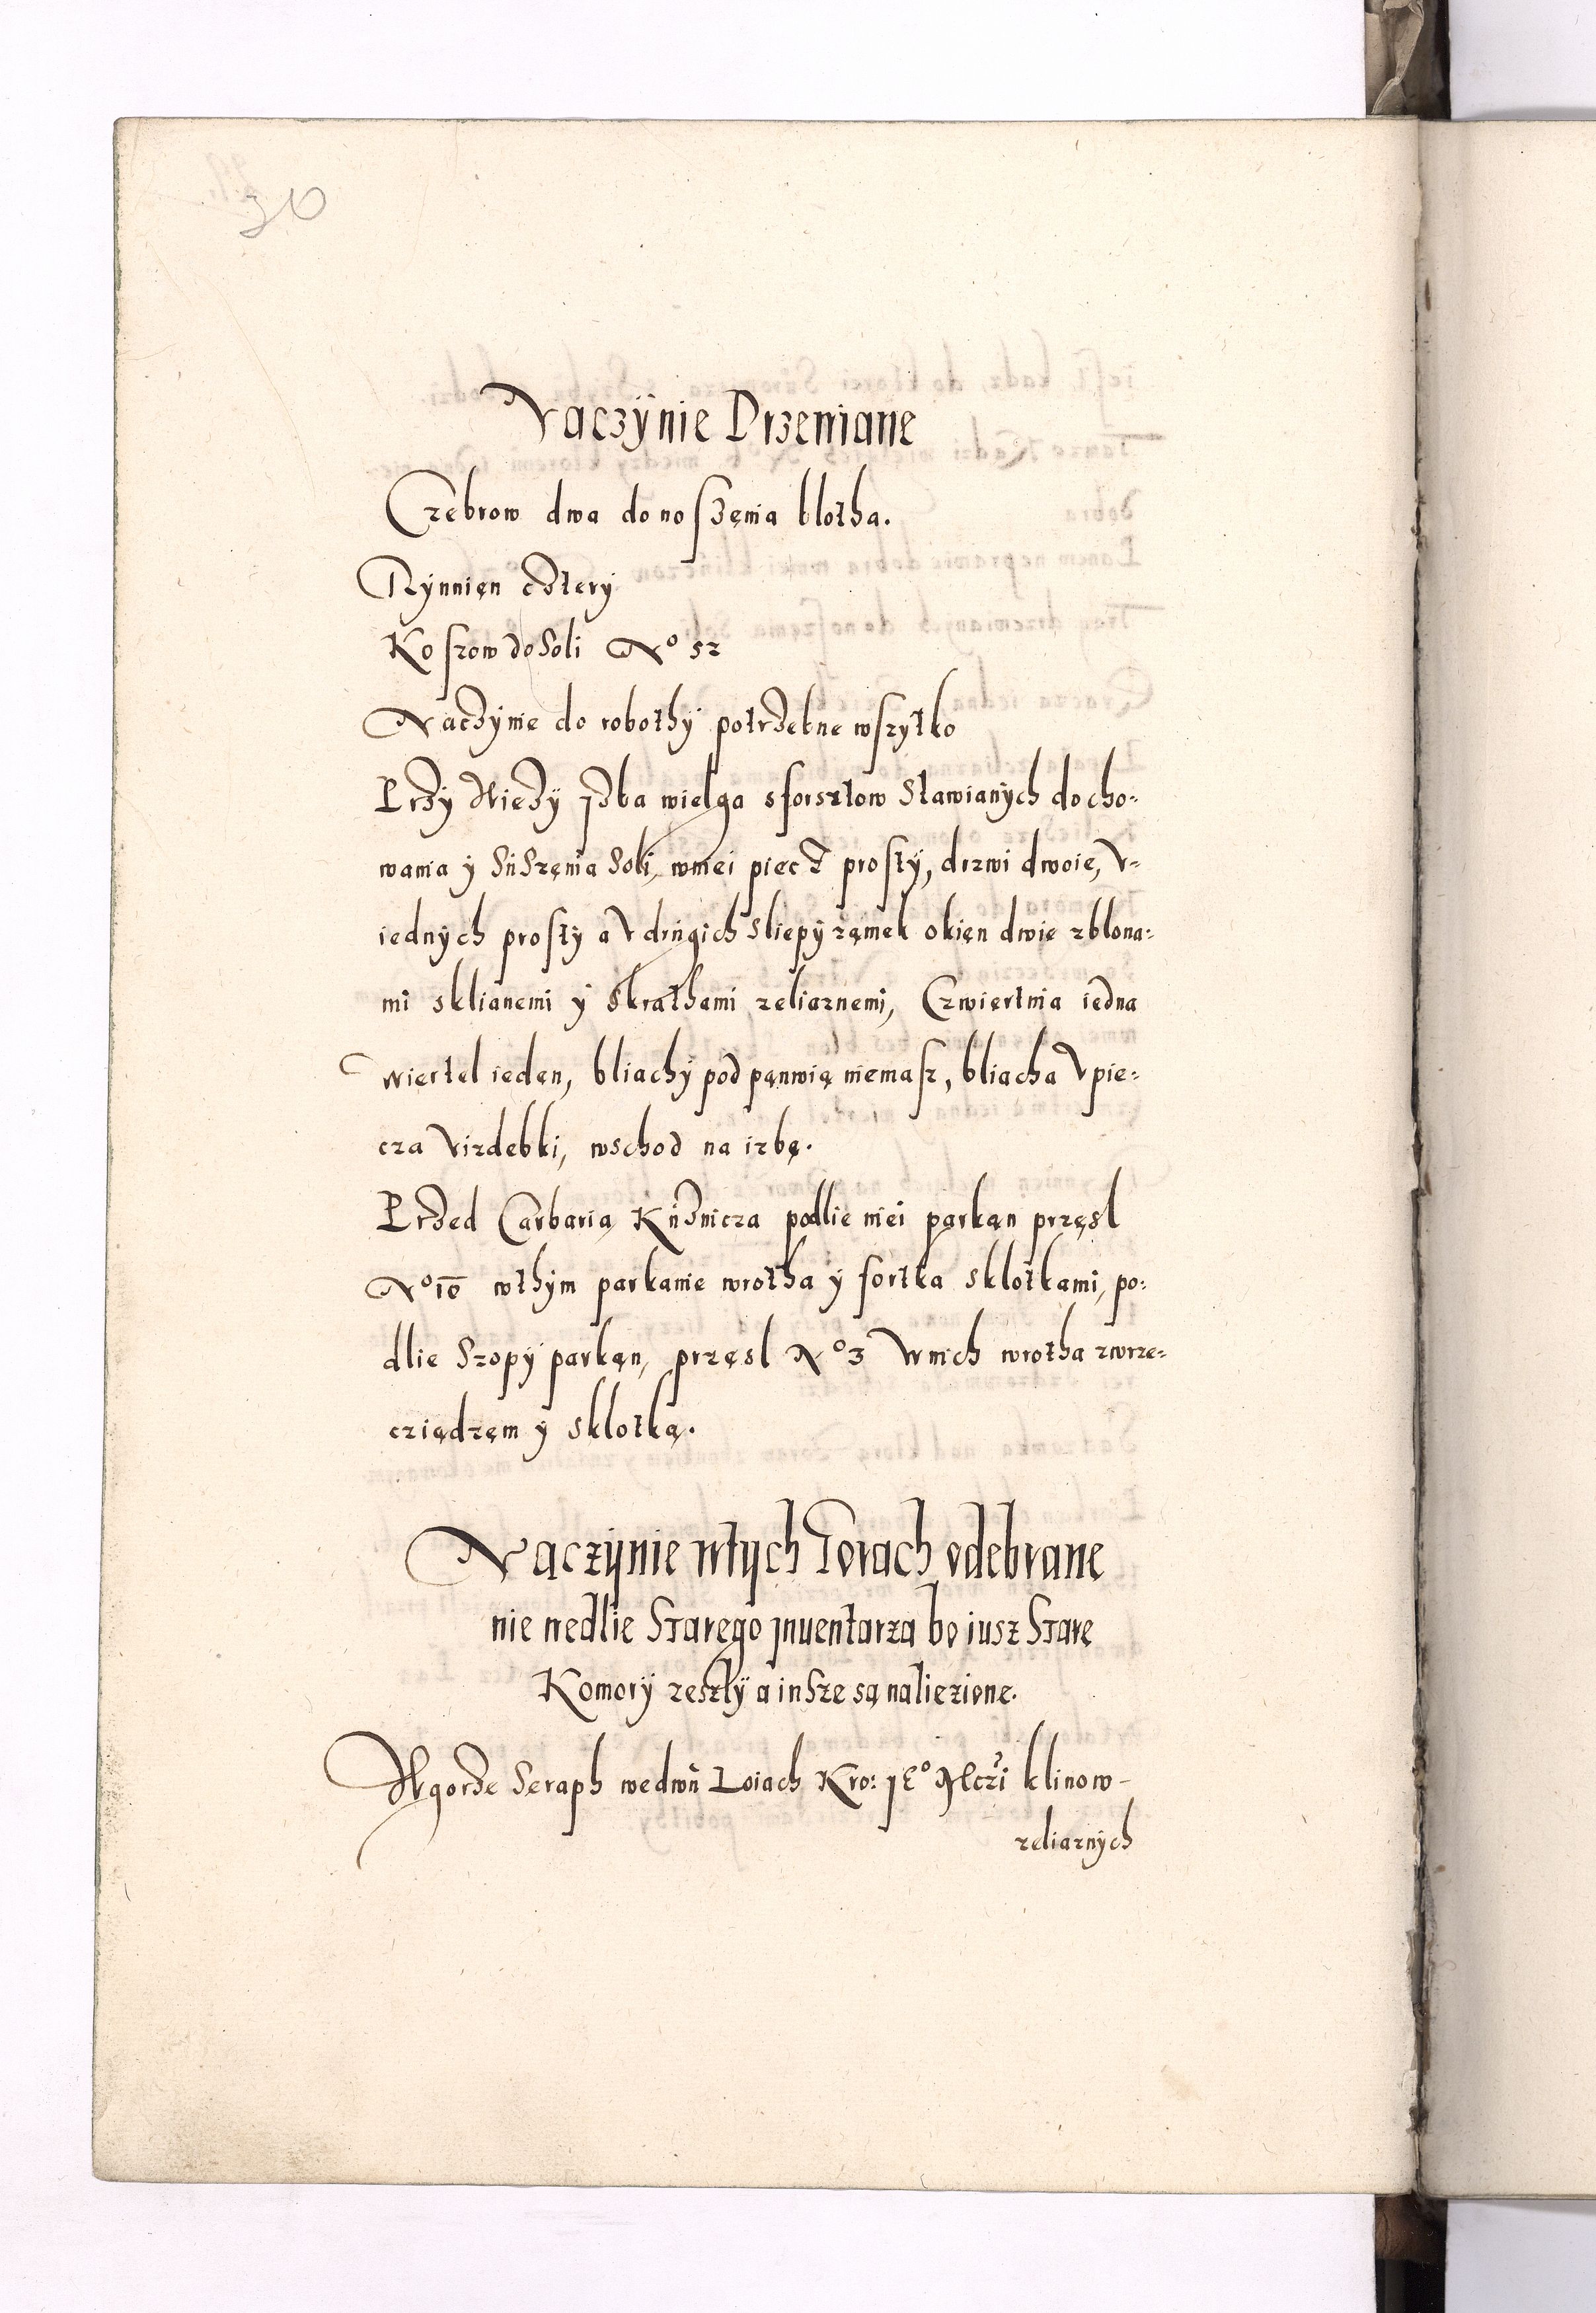 30
Naczÿnie Drzewiane
Czebrow dwa do noszęnia błotha.
Rÿnnięn cztery
Koszow do Soli No 52
Naczÿnie do robothÿ potrzebne wszytko
Przÿ Wieżÿ Izba wielga sforsztow Stawianÿch do cho-
wania ÿ Suszęnia Soli, wniei piecz prostÿ, drzwi dwoie, V-
iednÿch prostÿ a V drugich Sliepÿ ząmek okięn dwie zblona-
mi sklianemi ÿ Skrathami zeliaznemi, Czwiertnia iedna
wiertel ieden, bliachÿ pod pąnwią niemasz, bliacha V pie-
cza Vizdebki, wschod na izbę.
Przed Carbarią Kuznicza podlie niei parkąn przęsl
No 10 wthÿm parkanie wrotha ÿ fortka sklotkami, po-
dlie Szopÿ parkąn, przęsl No 3 Wnich wrotha zwrze-
cziądzęm ÿ sklotką.
Naczÿnie wtÿch Gorach odebrane
nie wedlie Starego Inuentarza bo iusz Stare
Komorÿ zeszłÿ a insze są naliezione.
Wgorze Seraph wedwu Loiach Kro: klinow-
zeliaznÿch